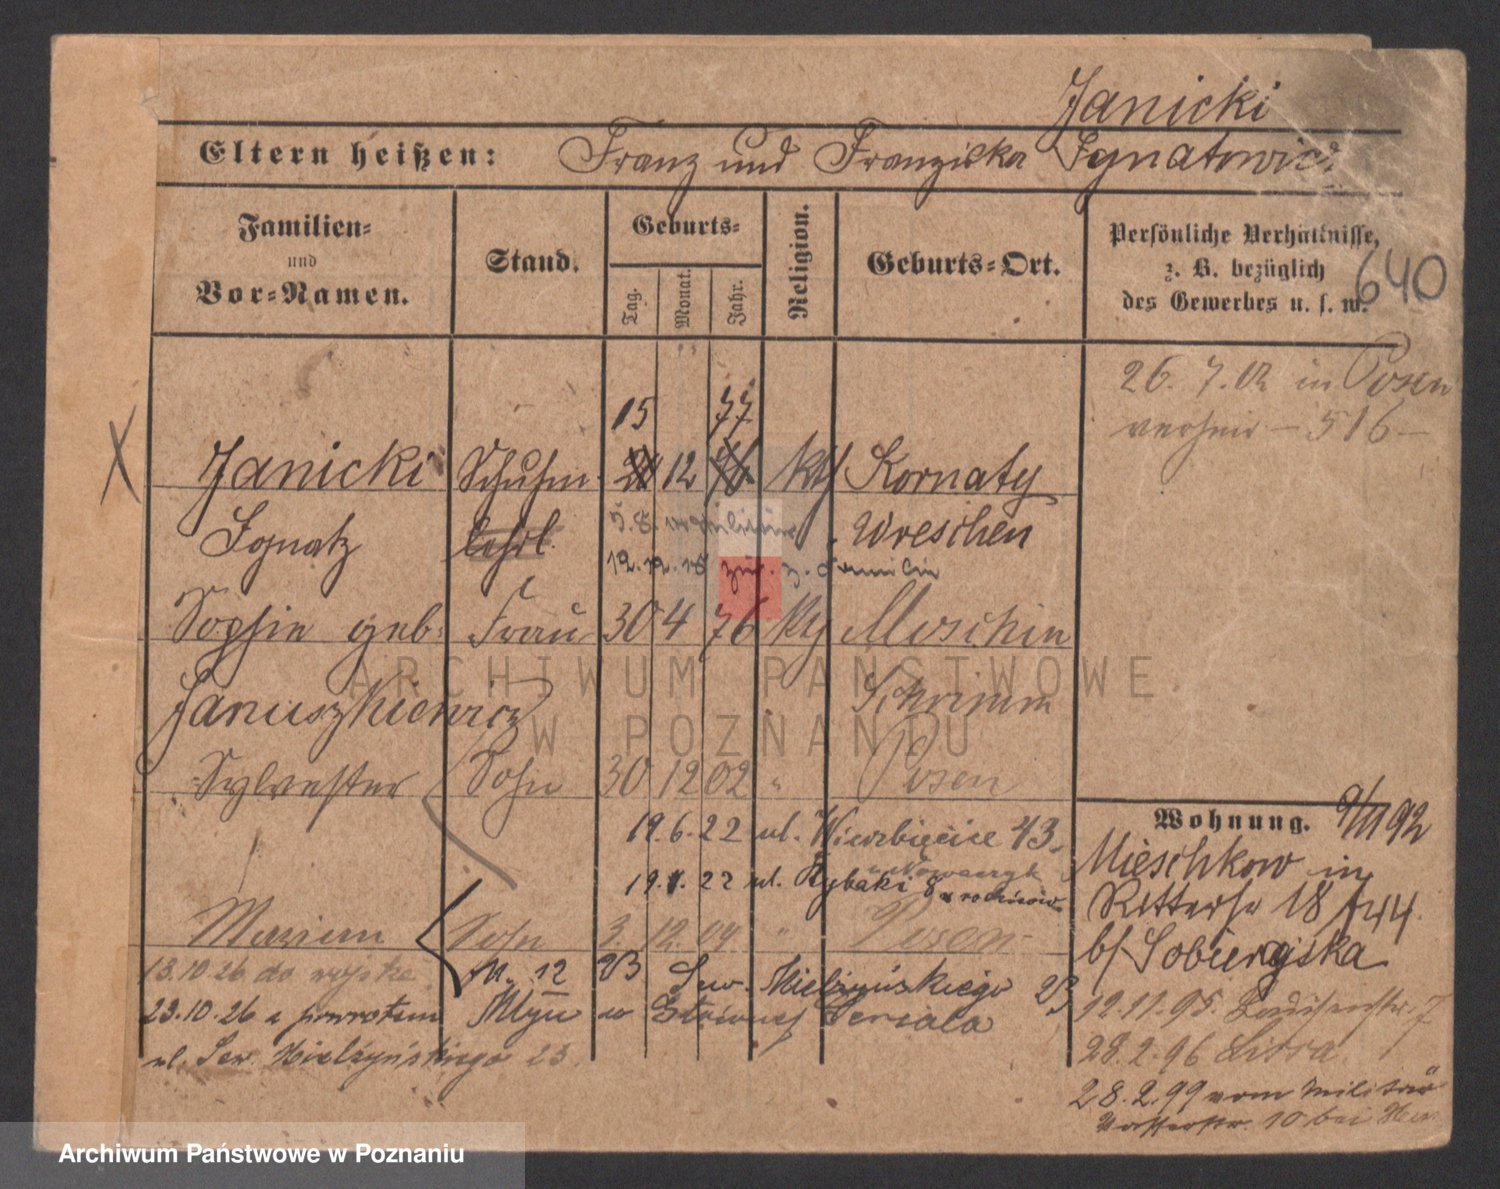 Janicki
Eltern heißen: Franz und Franziska Ignatowicz
Familien=
und
Vor=Namen.
Stand.
Geburts=
Tag.
Monat.
Jahr.
Religion.
Geburts=Ort.
Persönliche Verhältnisse,
z. B. bezüglich
des Gewerbes u. s. w.
640
26. 7. 02 in Posen
verheir – 516 –
15 77
Janicki Schuhm 12 kth Kornaty
Ignatz lehrl. Wreschen
12.12.18 z. Familie
Sophie geb. Frau 30 4 76 kth Moschin
Januszkiewicz Schrimm
Sylvester Sohn 30 12 02 " Posen
19.6.22 ul. Wierzbięcice 43
19. 22 ul. Rybaki 8
Maryan Sohn 3. 12. 04 " Posen
13.10.26 do wojska
12 23 Sew. Mielżyńskiego 23
23.10.26 z powrotem
ul. Sew. Mielżyńskiego 23.
Wohnung. 92
Mieschkow in
Ritterstr 18
b/ Sobierajska
12.11.95. 7
28.2.96 Lissa
28.2.99 vom Militär
10 bei
ARCHIWUM PAŃSTWOWE
W POZNANIU
Archiwum Państwowe w Poznaniu